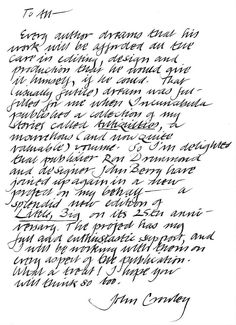 To All—
Every author dreams that his
work will be afforded all the
care in editing, design and
production that he would give
it himself, if he could. That
(usually futile) dream was ful-
filled for me when Incunabula
published a collection of my
stories called Antiquities, a
marvelous (and now quite
valuable) volume. So I'm delighted
that publisher Ron Drummond
and designer John Berry have
joined up again in a new
project on my behalf — a
splendid new edition of
Little, Big on its 25th anni-
versary. The project has my
full and enthusiastic support, and
I will be working with them on
every aspect of the publication.
What a treat! I hope you
will think so too.
John Crowley